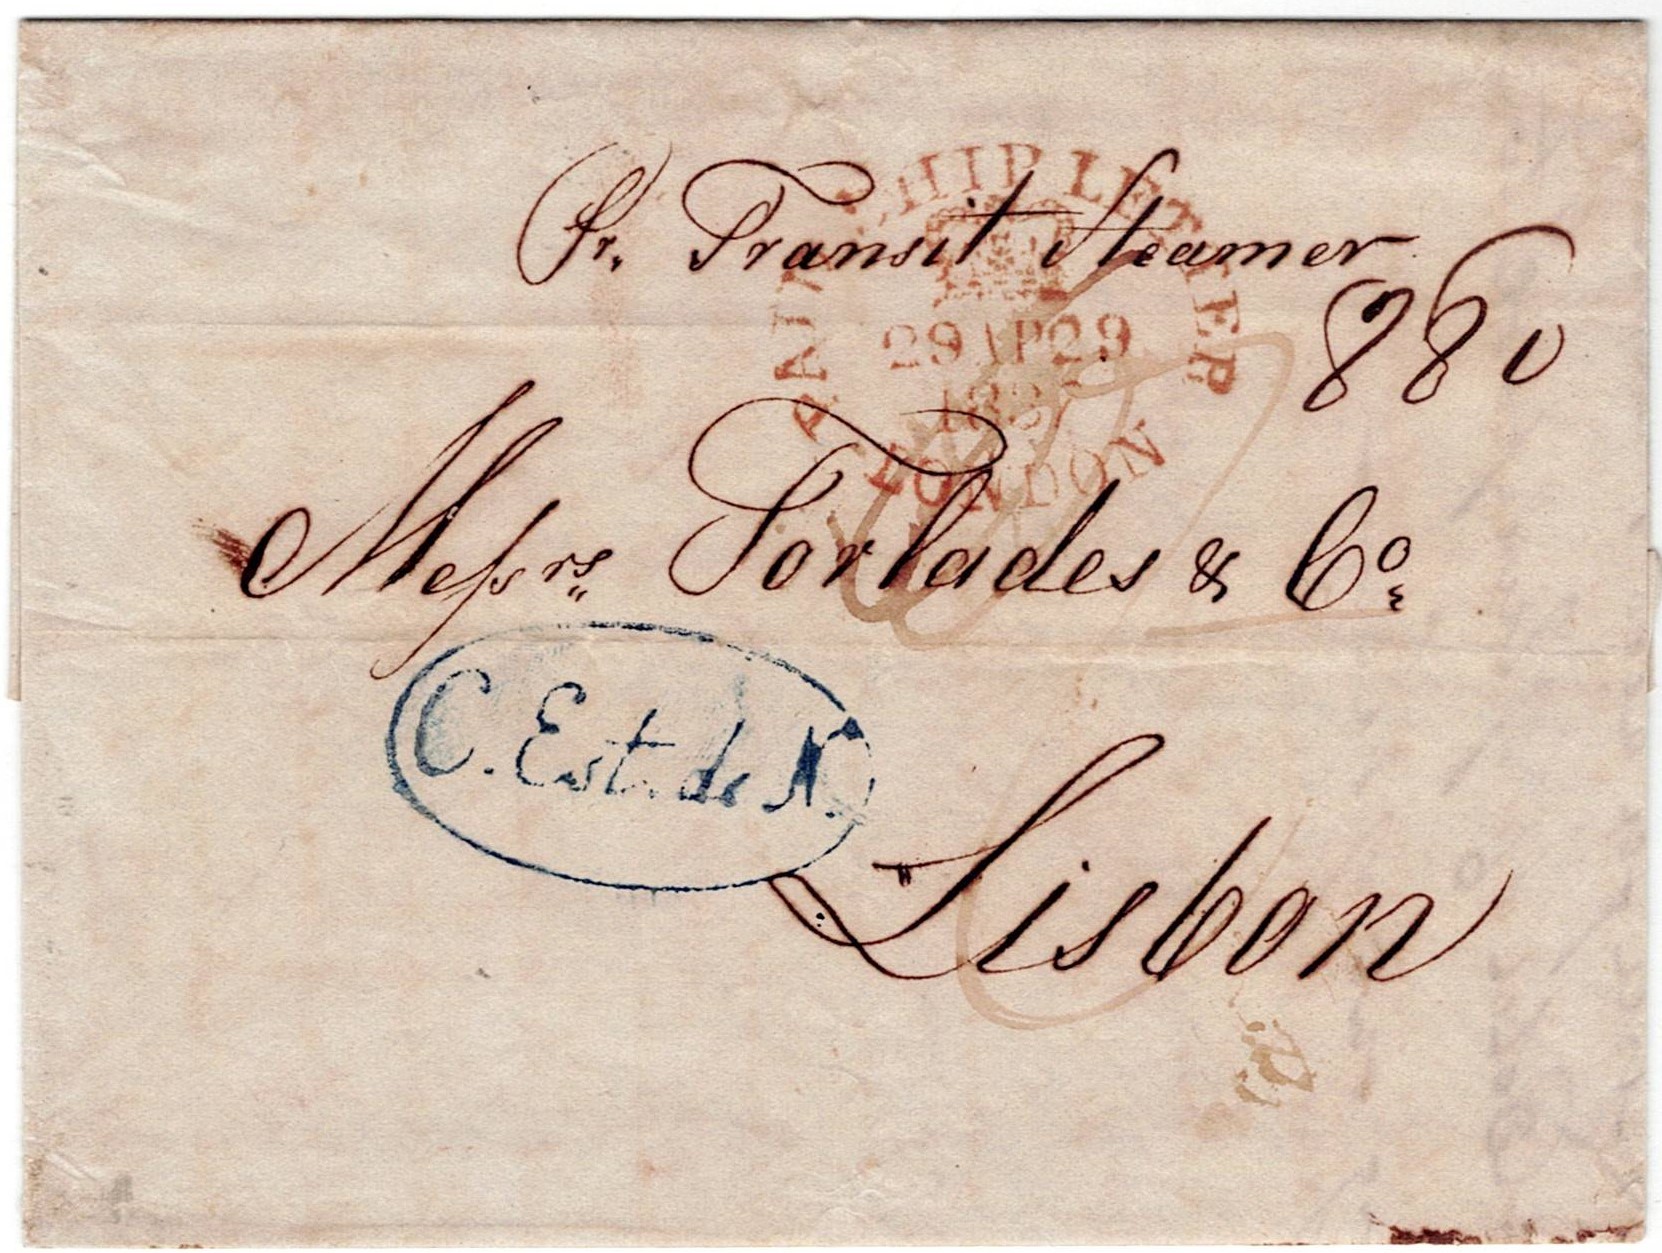 Pr. Transit Steamer
PAID SHIP LETTER
29 AP 29
LONDON
880
Messrs. Torlades & Co.
C. Est. de N.
Lisbon